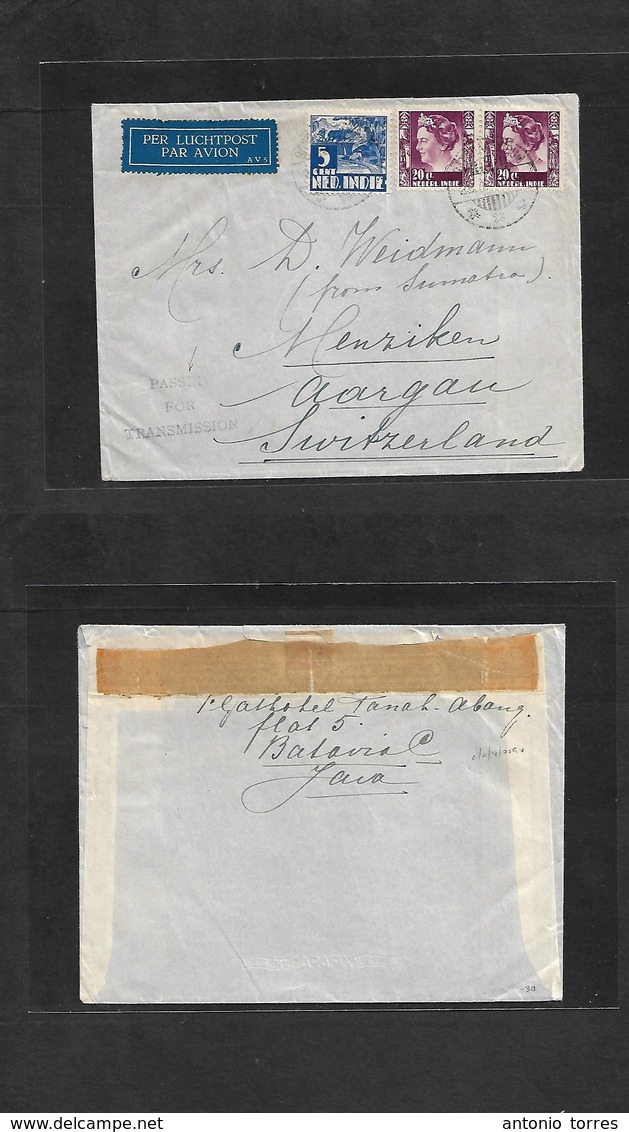 PER LUCHTPOST
PAR AVION
AV5
5
CENT
NED. INDIE
20 ct
NEDERL. INDIE
20 ct
NEDERL. INDIE
Mrs. D. Weidmann
(from Sumatra).
Menziken
Aargau
Switzerland
PASSED
FOR
TRANSMISSION
Tanah-Abang.
flat 5.
Batavia C
Java
30
antonio torres